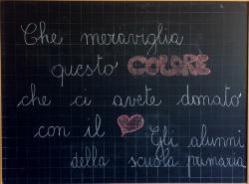 Che meraviglia
questo COLORE
che ci avete donato
con il
Gli alunni
della scuola primaria